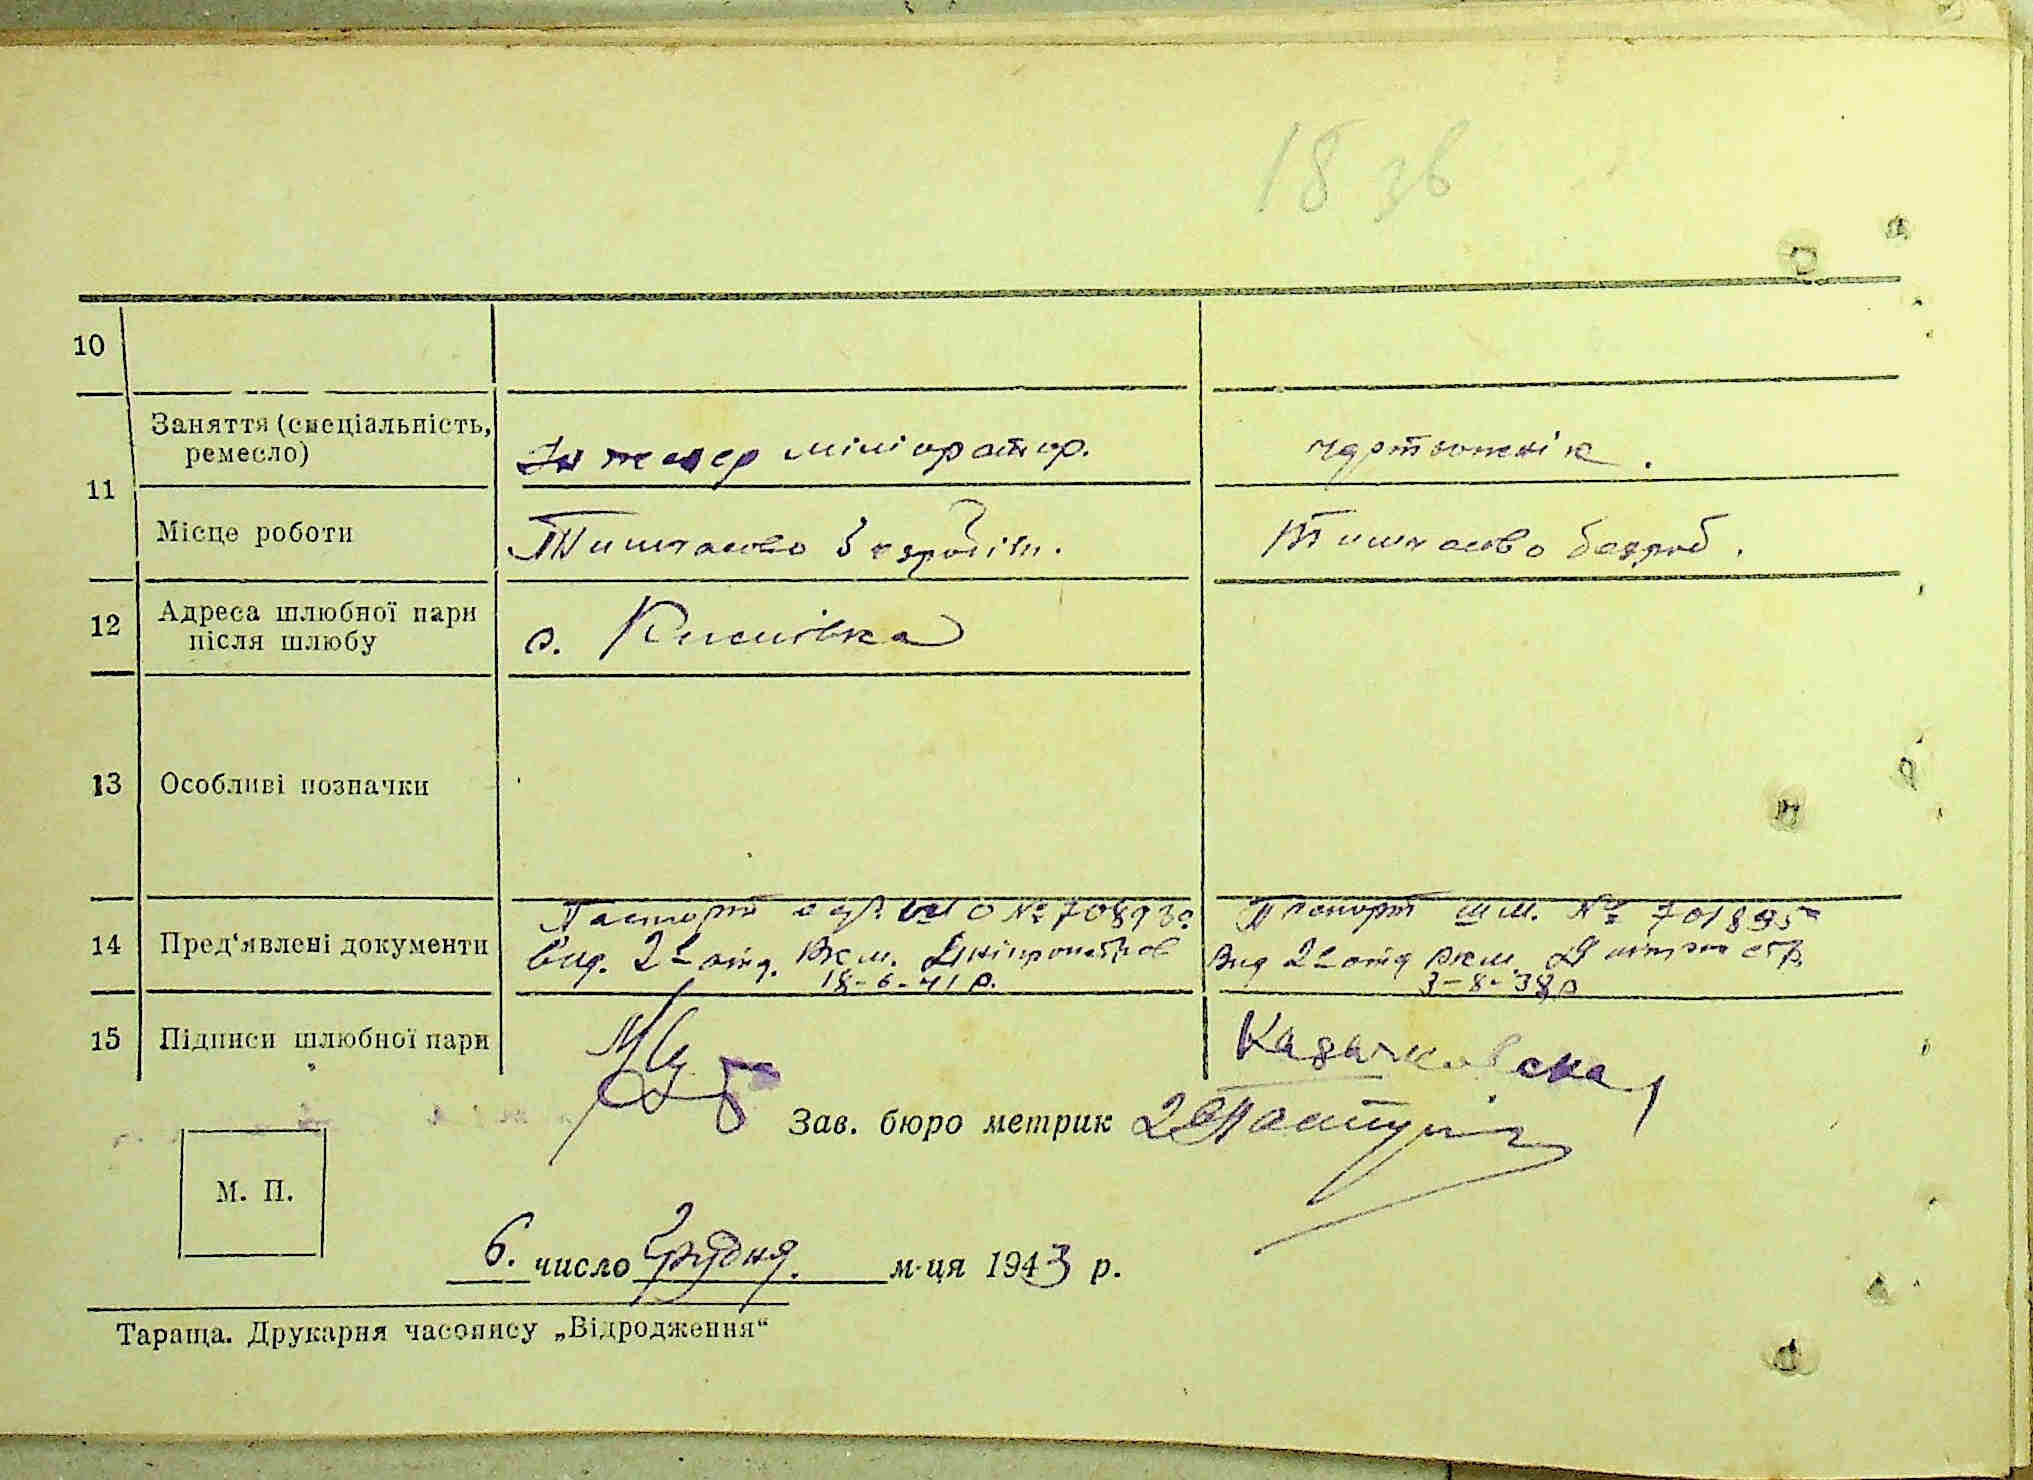 18 зв
10
Заняття (спеціальність, ремесло)
Інженер меліоратор.
чертьожнік.
11
Місце роботи
Тимчасово
Тимчасово безроб.
12
Адреса шлюбної пари після шлюбу
с.
13
Особливі позначки
14
Пред'явлені документи
Паспорт № 708930
Вид. 2 отд. Дніпропетров
18-6-41 р.
Паспорт № 701895
Вид 2 отд
3-8-38 р
15
Підписи шлюбної пари
Зав. бюро метрик
М. П.
6. число Грудня. м-ця 1943 р.
Тараща. Друкарня часопису „Відродження“